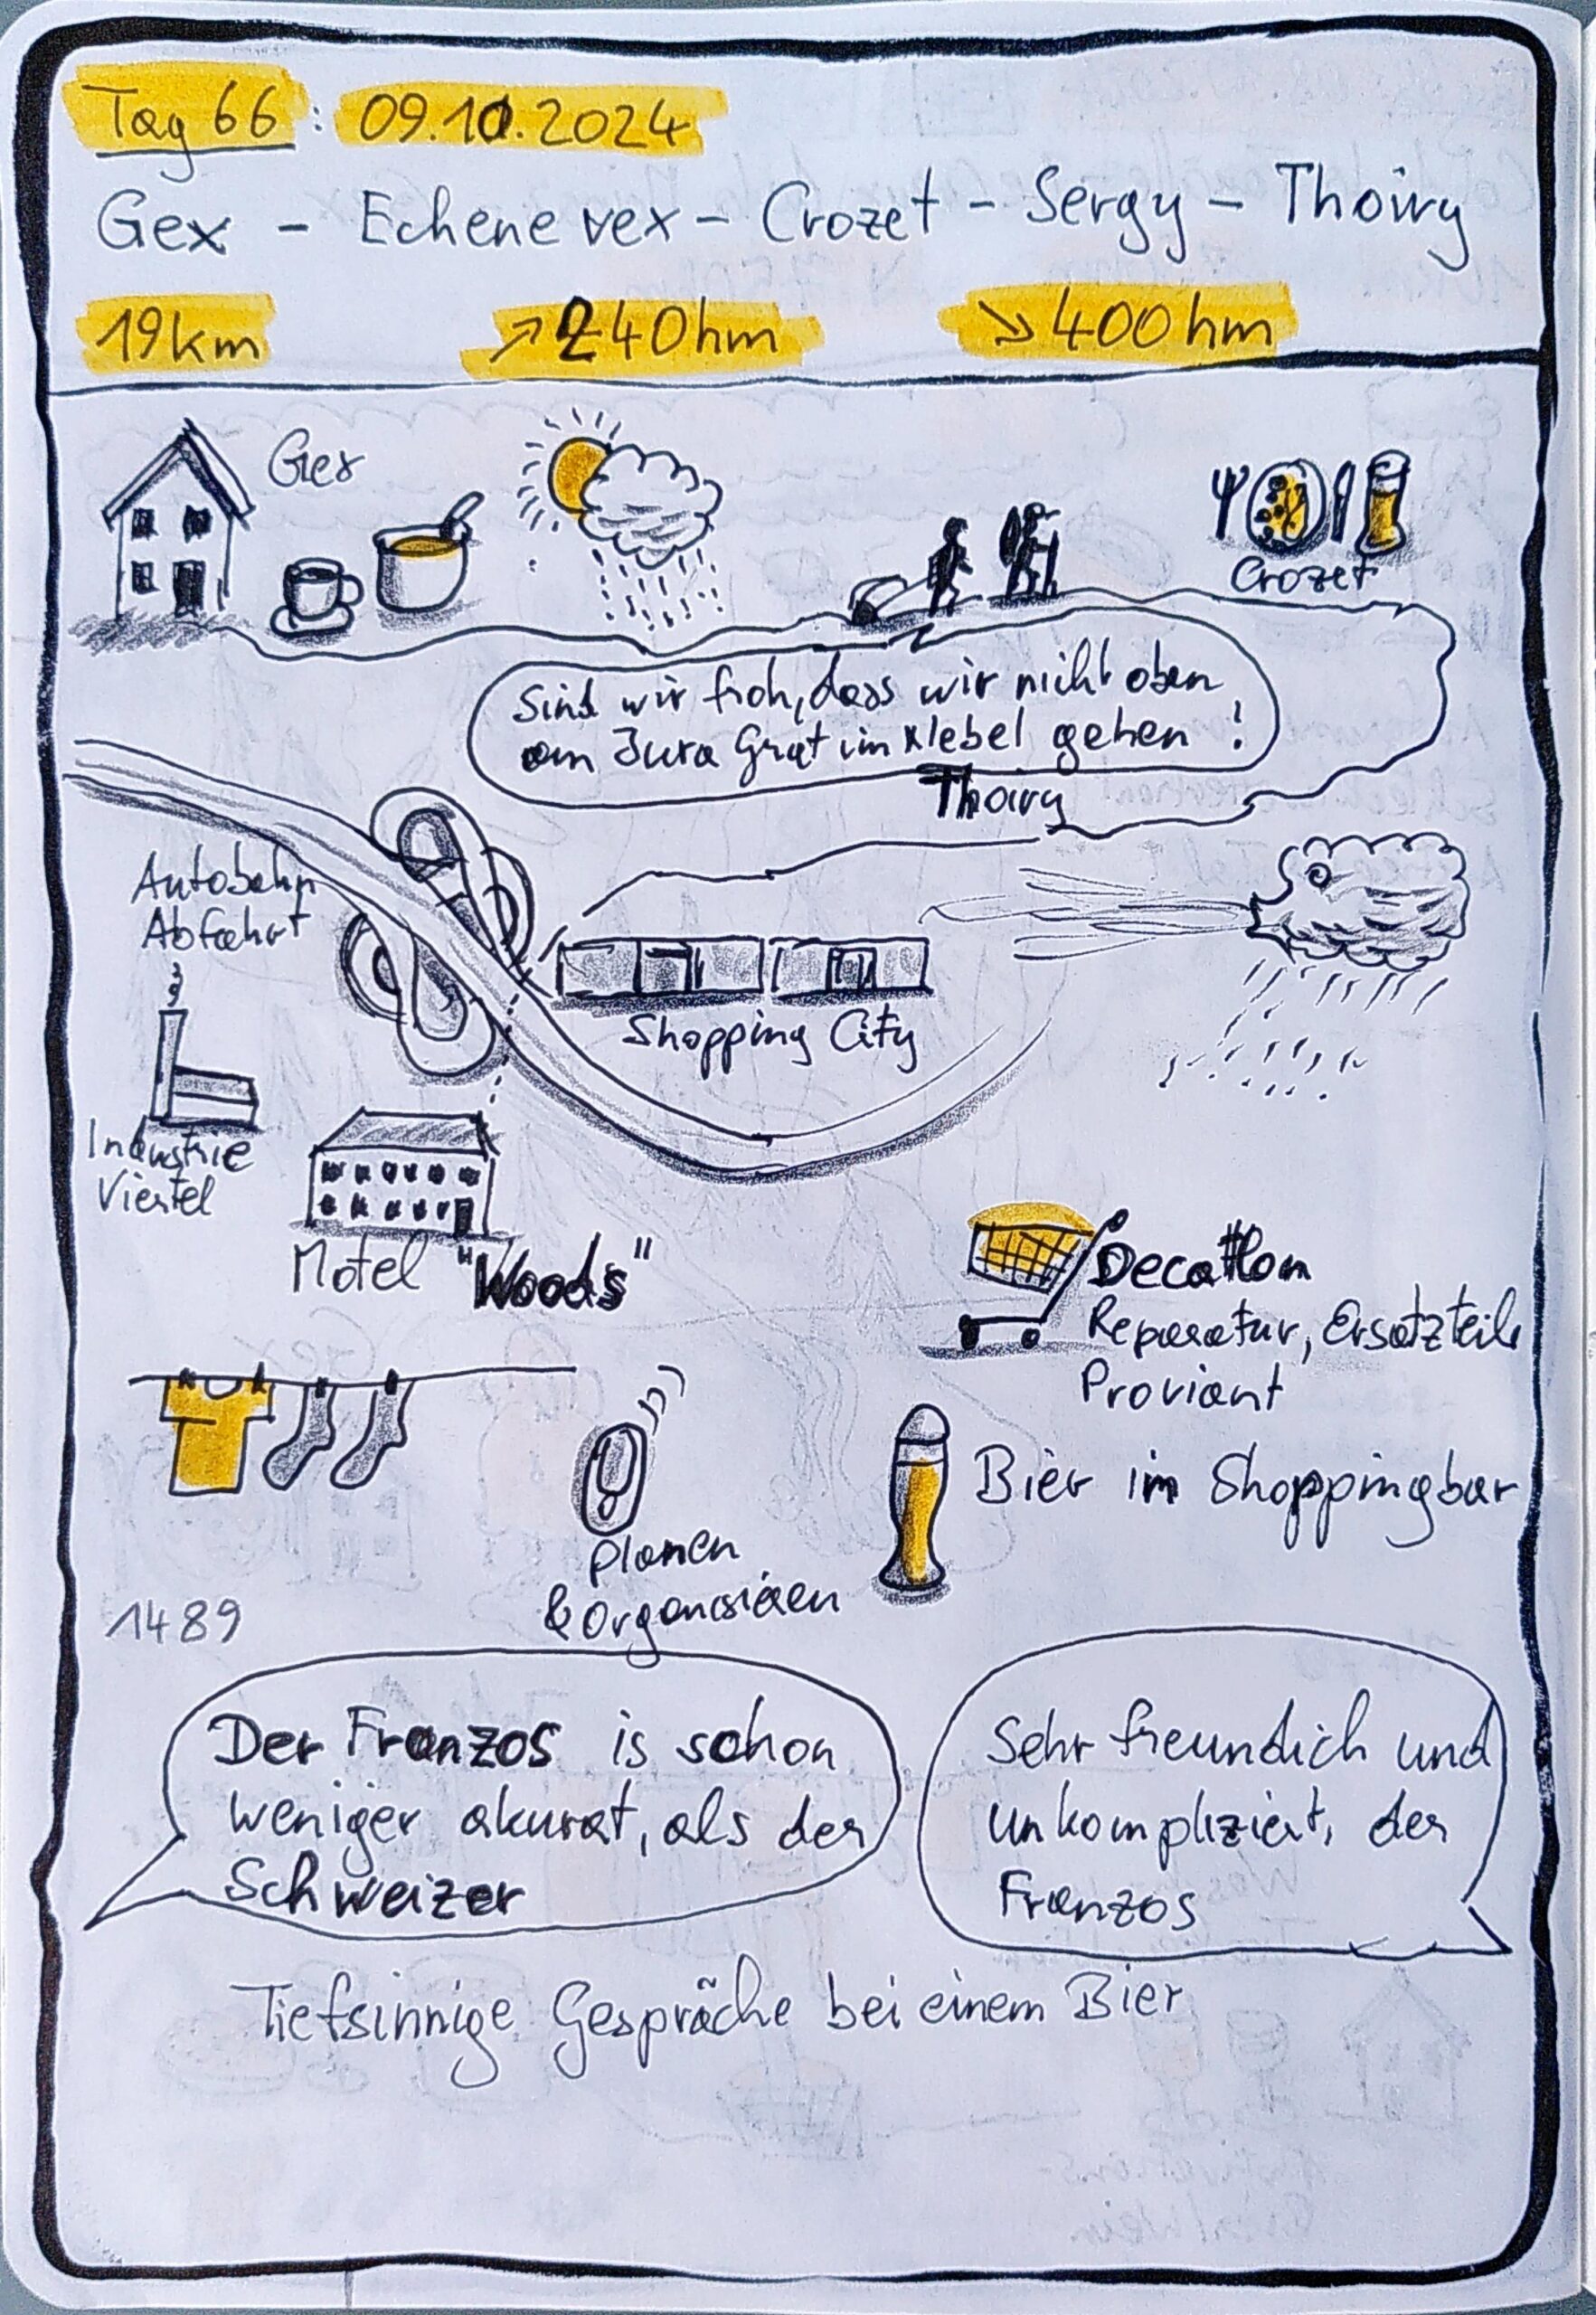 Tag 66: 09.10.2024
Gex - Echenevex - Crozet - Sergy - Thoiry
19km ↗ 240hm ↘ 400hm
Gex
Crozet
Sind wir froh, dass wir nicht oben
am Jura Grat im Nebel gehen!
Thoiry
Autobahn
Abfahrt
Shopping City
Industrie
Viertel
Motel "Woods"
Decatlon
Reparatur, Ersatzteile
Proviant
Bier im Shoppingbar
planen
& organisieren
1489
Der Franzos is schon
weniger akurat, als der
Schweizer
Sehr freundich und
unkompliziert, der
Franzos
Tiefsinnige Gespräche bei einem Bier